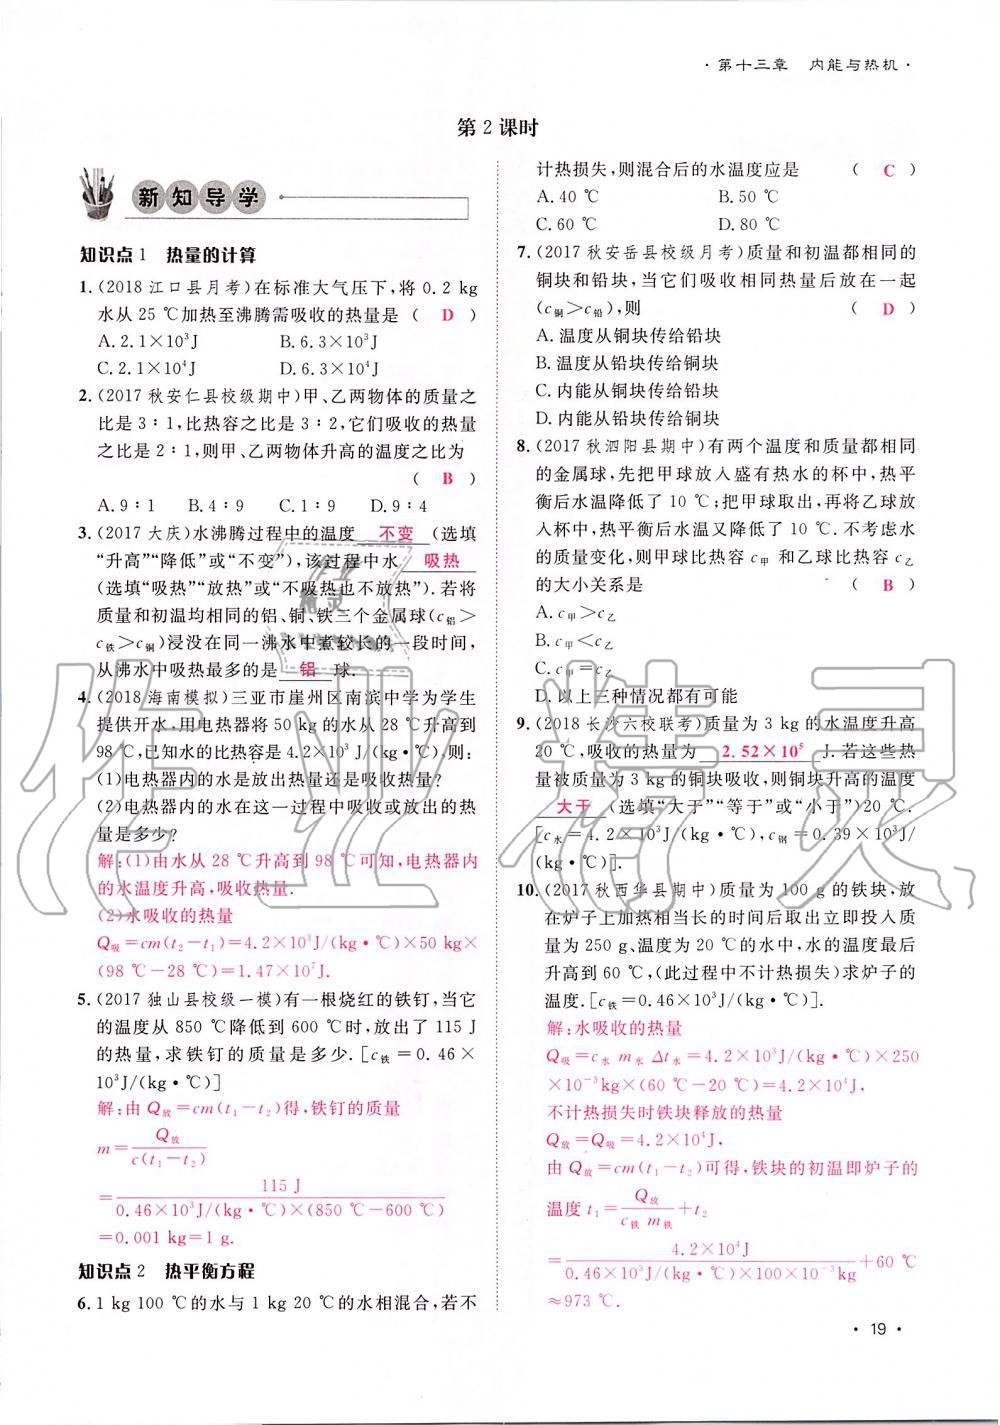 ·第十三章 内能与热机·
第2课时
新知导学
知识点1 热量的计算
1.(2018江口县月考)在标准大气压下,将0.2 kg
水从25 ℃加热至沸腾需吸收的热量是( D )
A.2.1×10³J B.6.3×10³J
C.2.1×10⁴J D.6.3×10⁴J
2.(2017秋安仁县校级期中)甲、乙两物体的质量之
比是3∶1,比热容之比是3∶2,它们吸收的热量
之比是2∶1,则甲、乙两物体升高的温度之比为
( B )
A.9∶1 B.4∶9 C.1∶9 D.9∶4
3.(2017大庆)水沸腾过程中的温度 不变 (选填
“升高”“降低”或“不变”),该过程中水 吸热
(选填“吸热”“放热”或“不吸热也不放热”).若将
质量和初温均相同的铝、铜、铁三个金属球(c铝>
c铁>c铜)浸没在同一沸水中煮较长的一段时间,
从沸水中吸热最多的是 铝 球.
4.(2018海南模拟)三亚市崖州区南滨中学为学生
提供开水,用电热器将50 kg的水从28 ℃升高到
98 ℃,已知水的比热容是4.2×10³ J/(kg·℃).则:
(1)电热器内的水是放出热量还是吸收热量?
(2)电热器内的水在这一过程中吸收或放出的热
量是多少?
解:(1)由水从28 ℃升高到98 ℃可知,电热器内
的水温度升高,吸收热量.
(2)水吸收的热量
Q吸=cm(t₂-t₁)=4.2×10³J/(kg·℃)×50 kg×
(98 ℃-28 ℃)=1.47×10⁷J.
5.(2017独山县校级一模)有一根烧红的铁钉,当它
的温度从850 ℃降低到600 ℃时,放出了115 J
的热量,求铁钉的质量是多少.[c铁=0.46×
10³J/(kg·℃)]
解:由Q放=cm(t₁-t₂)得,铁钉的质量
m=Q放/c(t₁-t₂)
=115 J/0.46×10³J/(kg·℃)×(850 ℃-600 ℃)
=0.001 kg=1 g.
知识点2 热平衡方程
6.1 kg 100 ℃的水与1 kg 20 ℃的水相混合,若不
计热损失,则混合后的水温度应是 ( C )
A.40 ℃ B.50 ℃
C.60 ℃ D.80 ℃
7.(2017秋安岳县校级月考)质量和初温都相同的
铜块和铅块,当它们吸收相同热量后放在一起
(c铜>c铅),则 ( D )
A.温度从铜块传给铅块
B.温度从铅块传给铜块
C.内能从铜块传给铅块
D.内能从铅块传给铜块
8.(2017秋泗阳县期中)有两个温度和质量都相同
的金属球,先把甲球放入盛有热水的杯中,热平
衡后水温降低了10 ℃;把甲球取出,再将乙球放
入杯中,热平衡后水温又降低了10 ℃.不考虑水
的质量变化,则甲球比热容c甲和乙球比热容c乙
的大小关系是 ( B )
A.c甲>c乙
B.c甲<c乙
C.c甲=c乙
D.以上三种情况都有可能
9.(2018长沙六校联考)质量为3 kg的水温度升高
20 ℃,吸收的热量为 2.52×10⁵ J.若这些热
量被质量为3 kg的铜块吸收,则铜块升高的温度
大于 (选填“大于”“等于”或“小于”)20 ℃.
[c水=4.2×10³J/(kg·℃),c铜=0.39×10³J/
(kg·℃)].
10.(2017秋西华县期中)质量为100 g的铁块,放
在炉子上加热相当长的时间后取出立即投入质
量为250 g、温度为20 ℃的水中,水的温度最后
升高到60 ℃,(此过程中不计热损失)求炉子的
温度.[c铁=0.46×10³J/(kg·℃)].
解:水吸收的热量
Q吸=c水 m水 Δt水=4.2×10³J/(kg·℃)×250
×10⁻³kg×(60 ℃-20 ℃)=4.2×10⁴J,
不计热损失时铁块释放的热量
Q放=Q吸=4.2×10⁴J,
由Q放=cm(t₁-t₂)可得,铁块的初温即炉子的
温度t₁=Q放/c铁 m铁+t₂
=4.2×10⁴J/0.46×10³J/(kg·℃)×100×10⁻³kg+60 ℃
≈973 ℃.
·19·
作业精灵